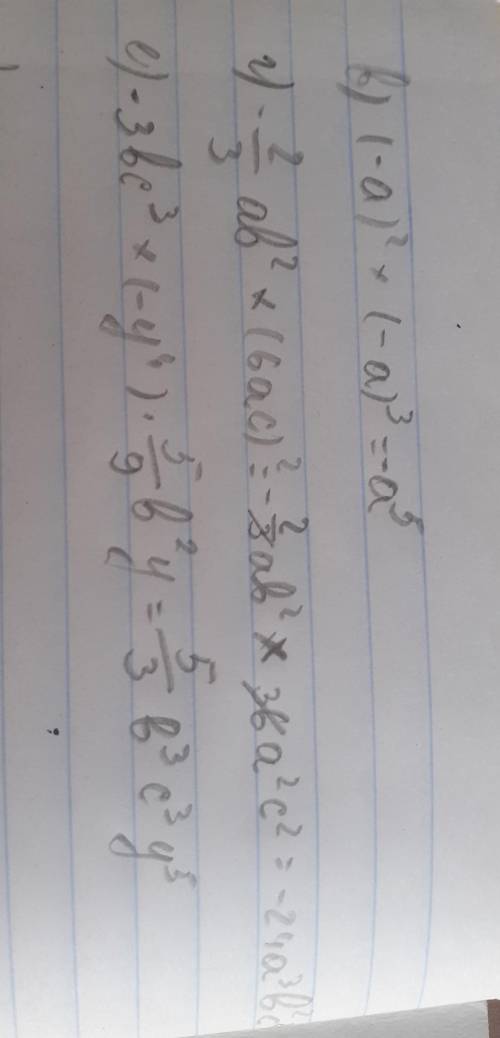 в) (-a)² × (-a)³ = -a⁵
г) -2/3 ab² × (6ac)² = -2/3 ab² × 36a²c² = -24a³b²c
е) -3bc³ × (-y⁴) · 5/9 b²y = 5/3 b³c³y⁵